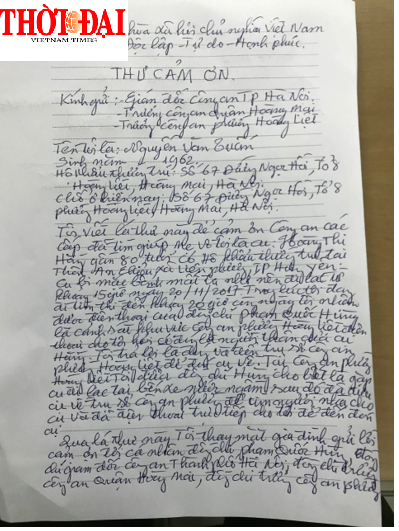 THỜI ĐẠI
VIETNAM TIMES
hòa xã hội chủ nghĩa Việt Nam
Độc lập - Tự do - Hạnh phúc.
THƯ CẢM ƠN.
Kính gửi: - Giám đốc Công an TP Hà Nội.
- Trưởng công an quận Hoàng Mai
- Trưởng công an phường Hoàng Liệt
Tên tôi là: Nguyễn Văn
Sinh năm 1962
Hộ khẩu thường trú: Số 67 Đường Ngọc Hồi, Tổ 8
Hoàng Liệt, Hoàng Mai, Hà Nội.
Chỗ ở hiện nay: Số 67 Đường Ngọc Hồi, Tổ 8
phường Hoàng Liệt, Hoàng Mai, Hà Nội.
Tôi viết lá thư này để cảm ơn Công an các
cấp đã tìm giúp Mẹ vợ tôi là cụ: Hoàng Thị
gần 80 tuổi có hộ khẩu thường trú tại
Thôn An xã Liên phường, TP Hưng Yên.
Cụ bị mắc bệnh
khoảng 15 giờ ngày 20/11/2017
đi tìm thì đến khoảng 20 giờ cùng ngày tôi nhận
được điện thoại của đồng chí Phạm Quốc Hùng
là cảnh sát khu vực công an phường Hoàng Liệt điện
thoại cho tôi hỏi có đúng là người thân của cụ
Tôi trả lời là đúng và đến trụ sở công an
phường Hoàng Liệt để đón cụ về. Tại công an phường
Hoàng Liệt Tôi được đồng chí Hùng cho biết là gặp
cụ đi lạc tại bến xe nước ngầm sau đó đã đưa
cụ về trụ sở công an phường để
cụ và đã điện thoại trực tiếp cho tôi để đến đón
cụ
Qua lá thư này Tôi thay mặt gia đình gửi lời
cảm ơn tới cá nhân đồng chí Phạm Quốc Hùng, đồng
chí giám đốc công an Thành phố Hà Nội, đồng chí trưởng
công an Quận Hoàng Mai, đồng chí trưởng công an phường